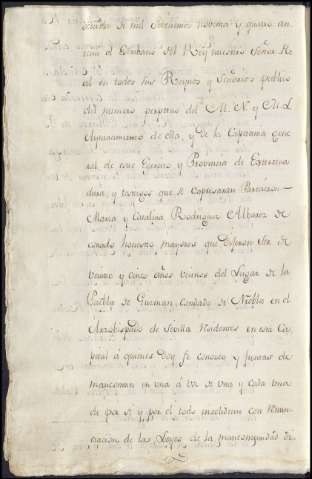 de mil setecientos noventa y quatro an
el Escribano del Rey nuestro Señor R.
en todos sus Reynos y Señorios publico
del numero perpetuo del M. N. y M. L.
Ayuntamiento de ella, y de la Capitania Gene
ral de este Egercito y Provincia de Estrema
dura, y testigos que se expresaran Parecieron
Maria y Catalina Rodriguez Albarez de
estado honesto mayores que dijeron ser de
veinte y cinco años vecinas del Lugar de la
Puebla de Guzman, Condado de Niebla en el
Arzobispado de Sevilla residentes en esta Ca
pital á quienes doy fe conozco, y juntas de
mancomun en una á voz de una y cada una
de por si, y por el todo insolidum con renun
ciacion de las Leyes de la mancomunidad de